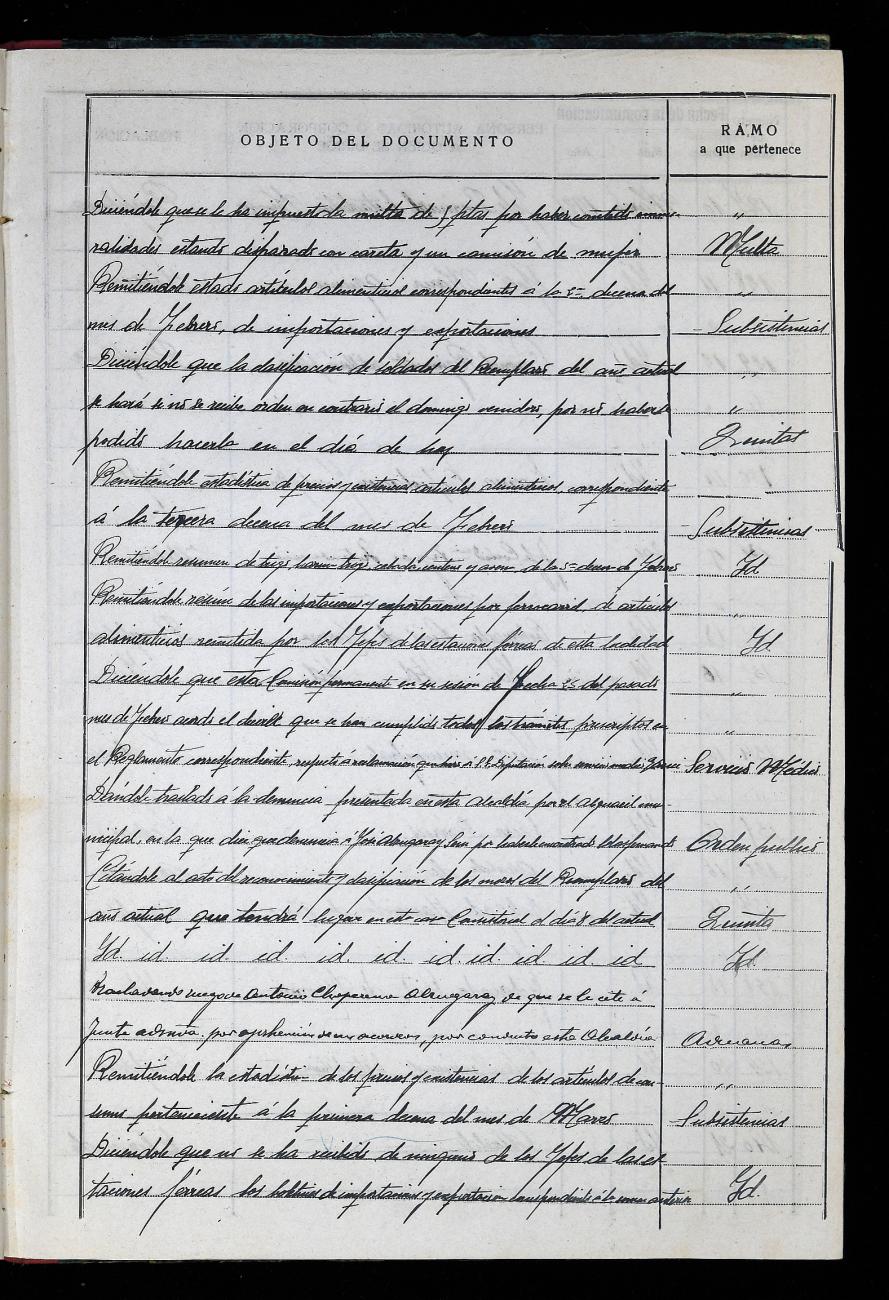 OBJETO DEL DOCUMENTO
RAMO
a que pertenece
Diciéndole que se le ha impuesto la multa de 5 ptas por haber cometido inmo- "
ralidades estando disfrazado con careta y en comisión de mujer Multa
Remitiéndole estado artículos alimenticios correspondientes á la 3ª decena del "
mes de Febrero, de importaciones y exportaciones Subsistencias
Diciéndole que la clasificación de soldados del Reemplazo del año actual "
se hará si no se recibe orden en contrario el domingo venidero, por no haberse "
podido hacerla en el día de hoy Quintas
Remitiéndole estadística de precios y existencias artículos alimenticios, correspondiente
á la tercera decena del mes de Febrero Subsistencias
Remitiendole resumen de trigo, harina trigo, cebada, centeno y avena, de la 3ª decena de Febrero Id
Remitiéndole resumen de las importaciones y exportaciones por ferrocarril de artículos "
alimenticios remitida por los Jefes de las estaciones férreas de esta localidad Id.
Diciéndole que esta Comisión permanente en su sesión de fecha 25 del pasado "
mes de Febrero acordó el decirle que se han cumplido todos los trámites prescriptos en "
el Reglamento correspondiente, respecto á reclamación que hizo á Diputación sobre Servicios Médicos
Dándole traslado á la denuncia presentada en esta Alcaldía por el Alguacil mu-
nicipal, en la que dice que denuncia á José por haberle encontrado blasfemando Orden publico
Citándole al acto del reconocimiento y clasificación de los mozos del Reemplazo del "
año actual que tendrá lugar en esta casa Consistorial el día 8 del actual Quintas
Id. id. id. id. id. id. id. id. id. id. id Id.
Trasladando ruego de Antonio de que se le cite á
Junta admva. por aprehensión de por conducto esta Alcaldía Aduanas
Remitiéndole la estadística de los precios y existencias de los artículos de con- "
sumo perteneciente á la primera decena del mes de Marzo Subsistencias
Diciéndole que no se ha recibido de ninguno de los Jefes de las es-
taciones férreas los boletines de importaciones y exportación correspondiente á la decena anterior Id.